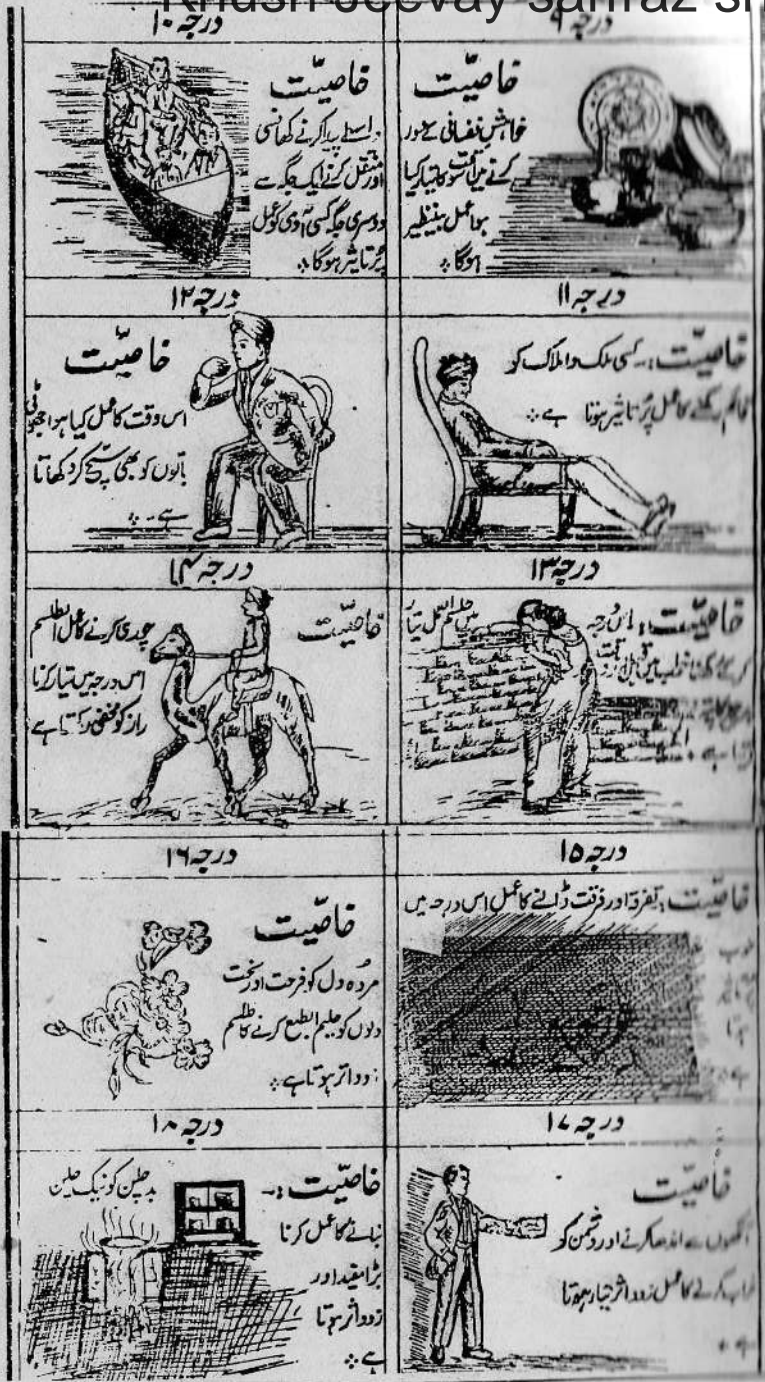 Khush Jeevay sarfraz sh
درجہ ۹
خاصیّت
خواہش نفسانی کے دور
کرنے میں اس وقت کا تیار کیا
ہوا عمل بینظیر
ہوگا ؞
درجہ ۱۰
خاصیّت
واسطے پیدا کرنے کھانسی
اور منتقل کرنے ایک جگہ سے
دوسری جگہ کسی آدمی کو عمل
پُرتاثیر ہوگا ؞
درجہ ۱۱
خاصیّت :۔ کسی ملک و املاک کو
قائم رکھنے کا عمل پُرتاثیر ہوتا ہے ؞
درجہ ۱۲
خاصیّت
اس وقت کا عمل کیا ہوا جھوٹی
باتوں کو بھی سچ کر دکھاتا
ہے ۔ ؞
درجہ ۱۳
خاصیّت :۔ اس درجہ میں تیار
کر کے خواب میں
درجہ ۱۴
خاصیّت
چوری کرنے کا عمل یا طلسم
اس درجہ میں تیار کرنا
راز کو مخفی رکھتا ہے
درجہ ۱۵
خاصیّت :۔ تفرقہ اور فرقت ڈالنے کا عمل اس درجہ میں
خوب
ہوتا
ہے ؞
درجہ ۱۶
خاصیّت
مردہ دل کو فرحت اور سخت
دلوں کو حلیم الطبع کرنے کا طلسم
زود اثر ہوتا ہے ؞
درجہ ۱۷
خاصیّت
آنکھوں سے اندھا کرنے اور دشمن کو
خراب کرنے کا عمل زود اثر تیار ہوتا
ہے ؞
درجہ ۱۸
خاصیّت :۔ بدچلن کو نیک چلن
بنانے کا عمل کرنا
بڑا مفید اور
زود اثر ہوتا
ہے ؞